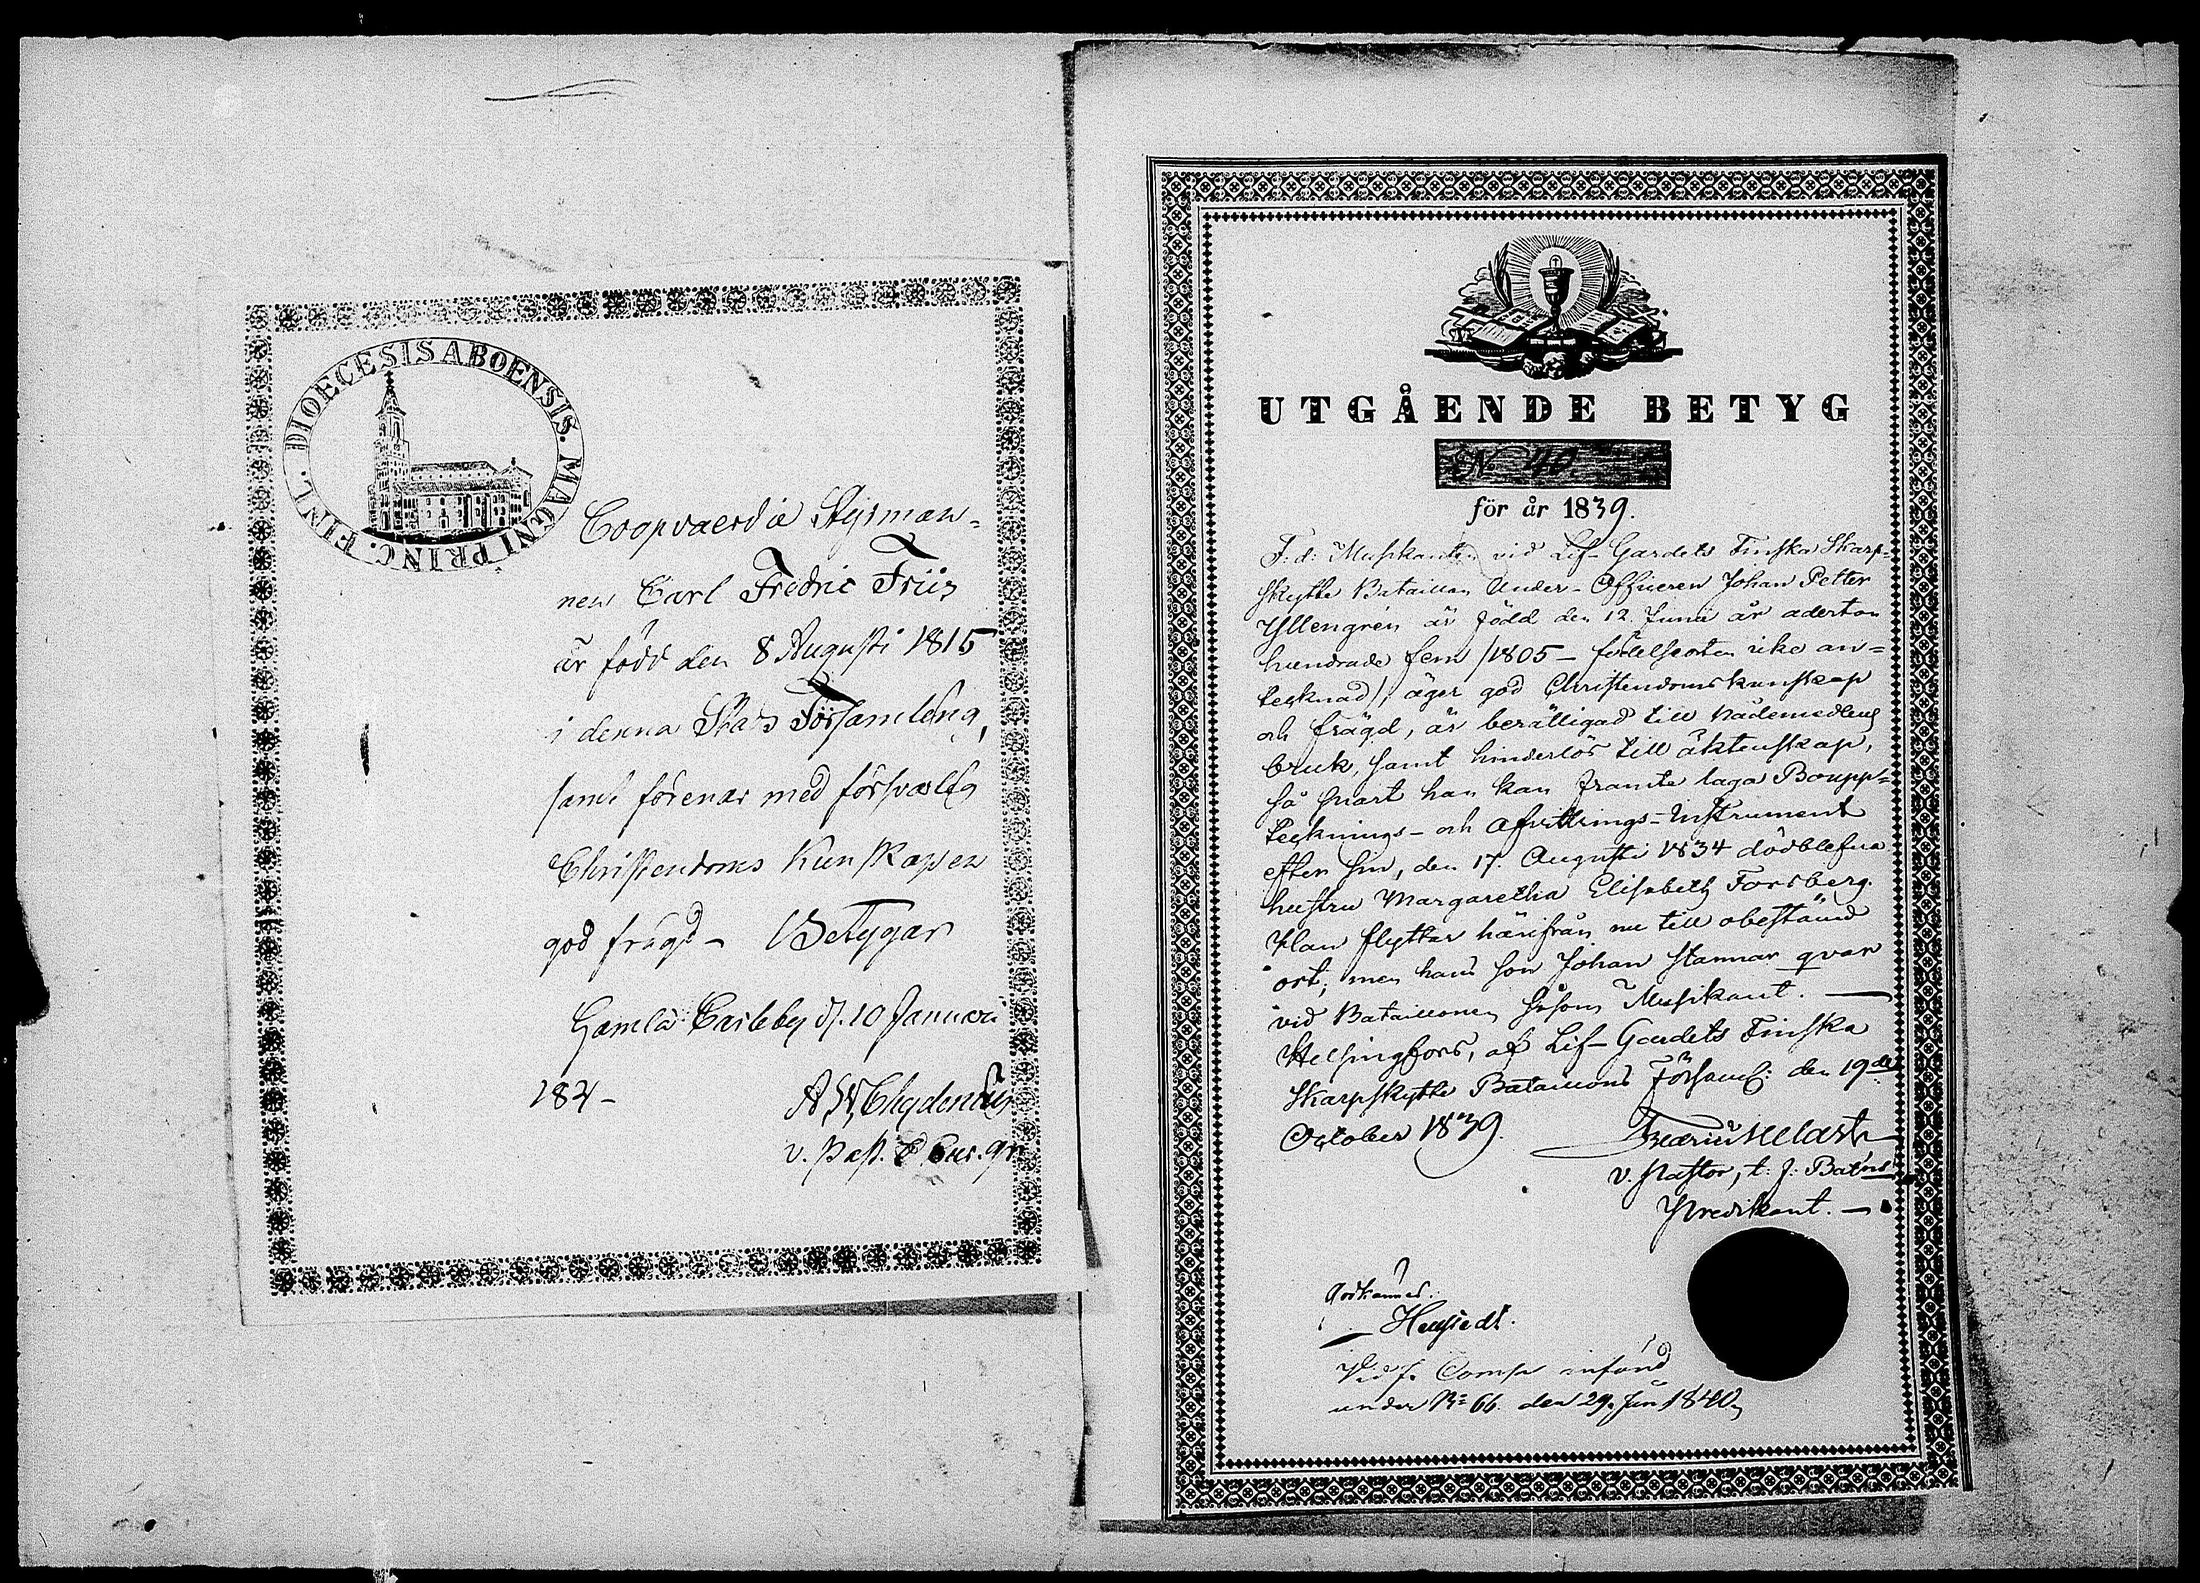 DIOECESIS ABOENSIS. MAGNI PRINC. FINL.
Coopvaerdie Styrman-
nen Carl Fredric Friis
är född den 8 Augusti 1815
i denna Stads Församling,
samt förenar med försvarlig
Christendoms Kunskapen
god frägd – Betygar
Gamla Carleby d. 10 Januari
184–
A. W. Chydenius
v. Past.
UTGÅENDE BETYG
No 40
för år 1839.
F. d. Musikanten vid Lif-Gardets Finska Skarp=
skytte Bataillon Under-Officeren Johan Petter
Yllengrén är född den 12 Junii år aderton
hundrade fem /1805 – födelseorten icke an=
tecknad/, äger god Christendomskunskap
och frägd, är berättigad till Nådemedlens
bruk, samt hinderlös till äktenskap,
så snart han kan framte laga Boupp=
tecknings- och Afvittrings-Instrument
efter sin, den 17 Augusti 1834 dödblefna
hustru Margaretha Elisabeth Forsberg.
Han flyttar härifrån nu till obestämd
ort; men hans son Johan stannar qvar
vid Bataillonen såsom Musikant. —
Helsingfors, af Lif-Gardets Finska
Skarpskytte Bataillons Församl: den 19de
October 1839.
v. Pastor, t. f. Bat:ns
Predikant. —
Godkännes:
Vid f. Comp införd
under No 66. den 29. Jun 1840